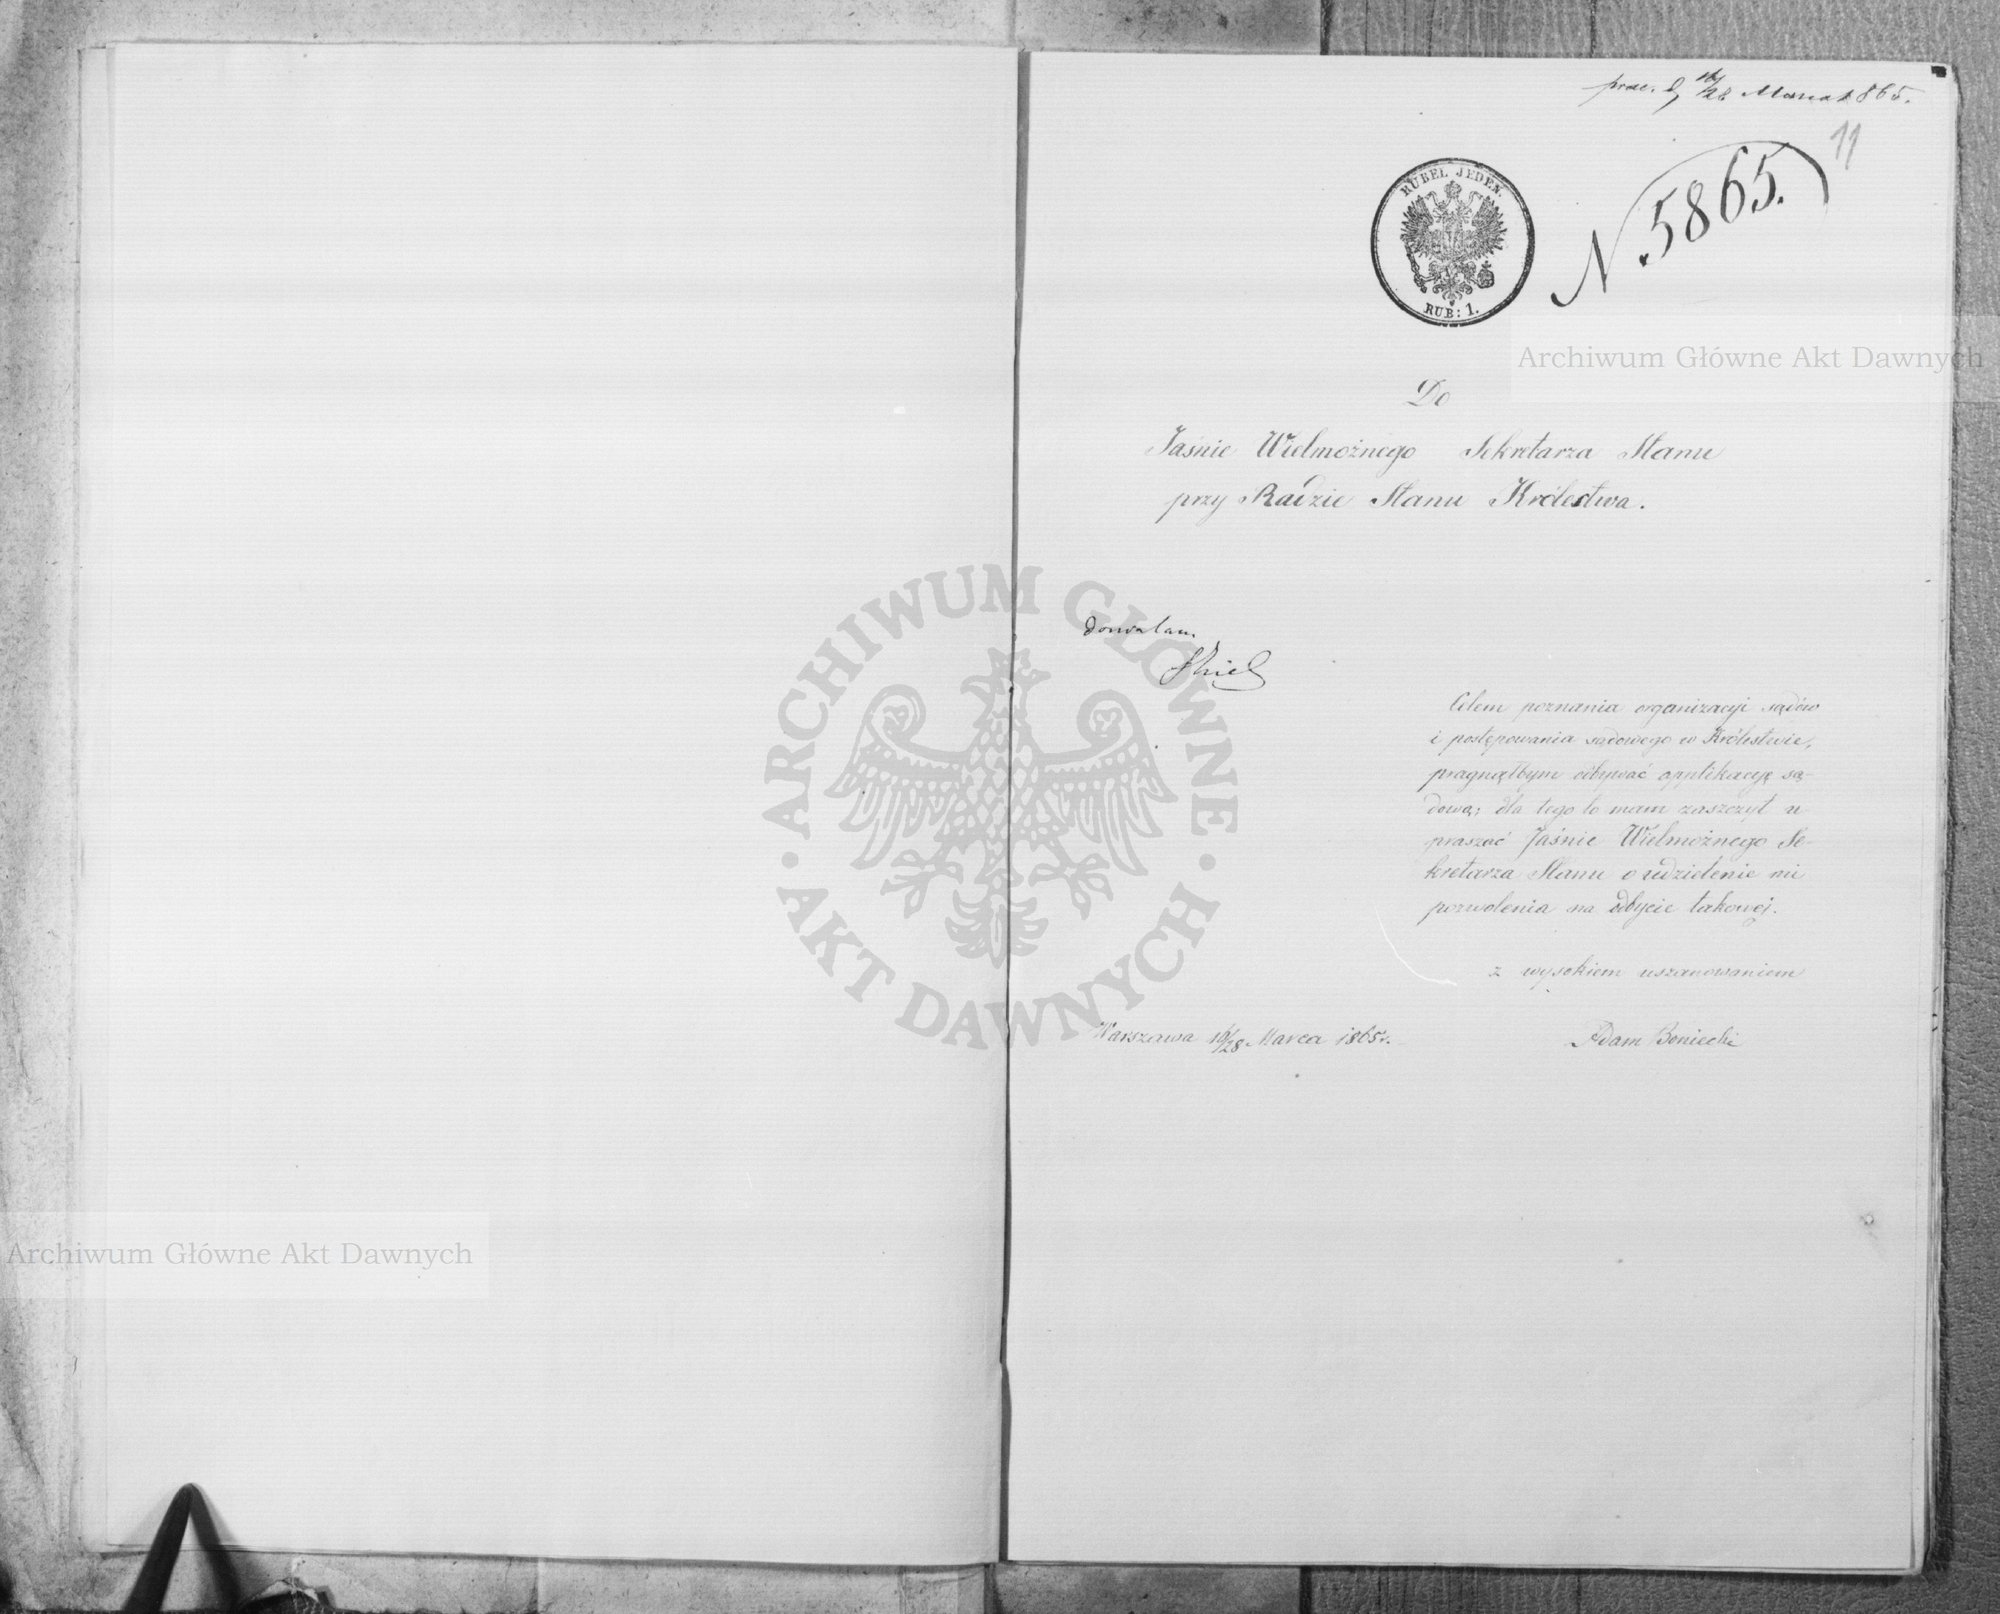 prae. d 16/28 Marca 1865.
11
N. 5865.
RUBEL JEDEN.
RUB: 1.
Archiwum Główne Akt Dawnych
Do
Jaśnie Wielmożnego Sekretarza Stanu
przy Radzie Stanu Królestwa.
dozwalam
Celem poznania organizacyi sądów
i postępowania sądowego w Królestwie,
pragnąłbym odbywać aplikacyję są-
dową; dla tego to mam zaszczyt u
praszać Jaśnie Wielmożnego Se-
kretarza Stanu o udzielenie mi
pozwolenia na odbycie takowej.
z wysokiem uszanowaniem
Warszawa 16/28 Marca 1865 r.
Adam Boniecki
ARCHIWUM GŁÓWNE
AKT DAWNYCH
Archiwum Główne Akt Dawnych